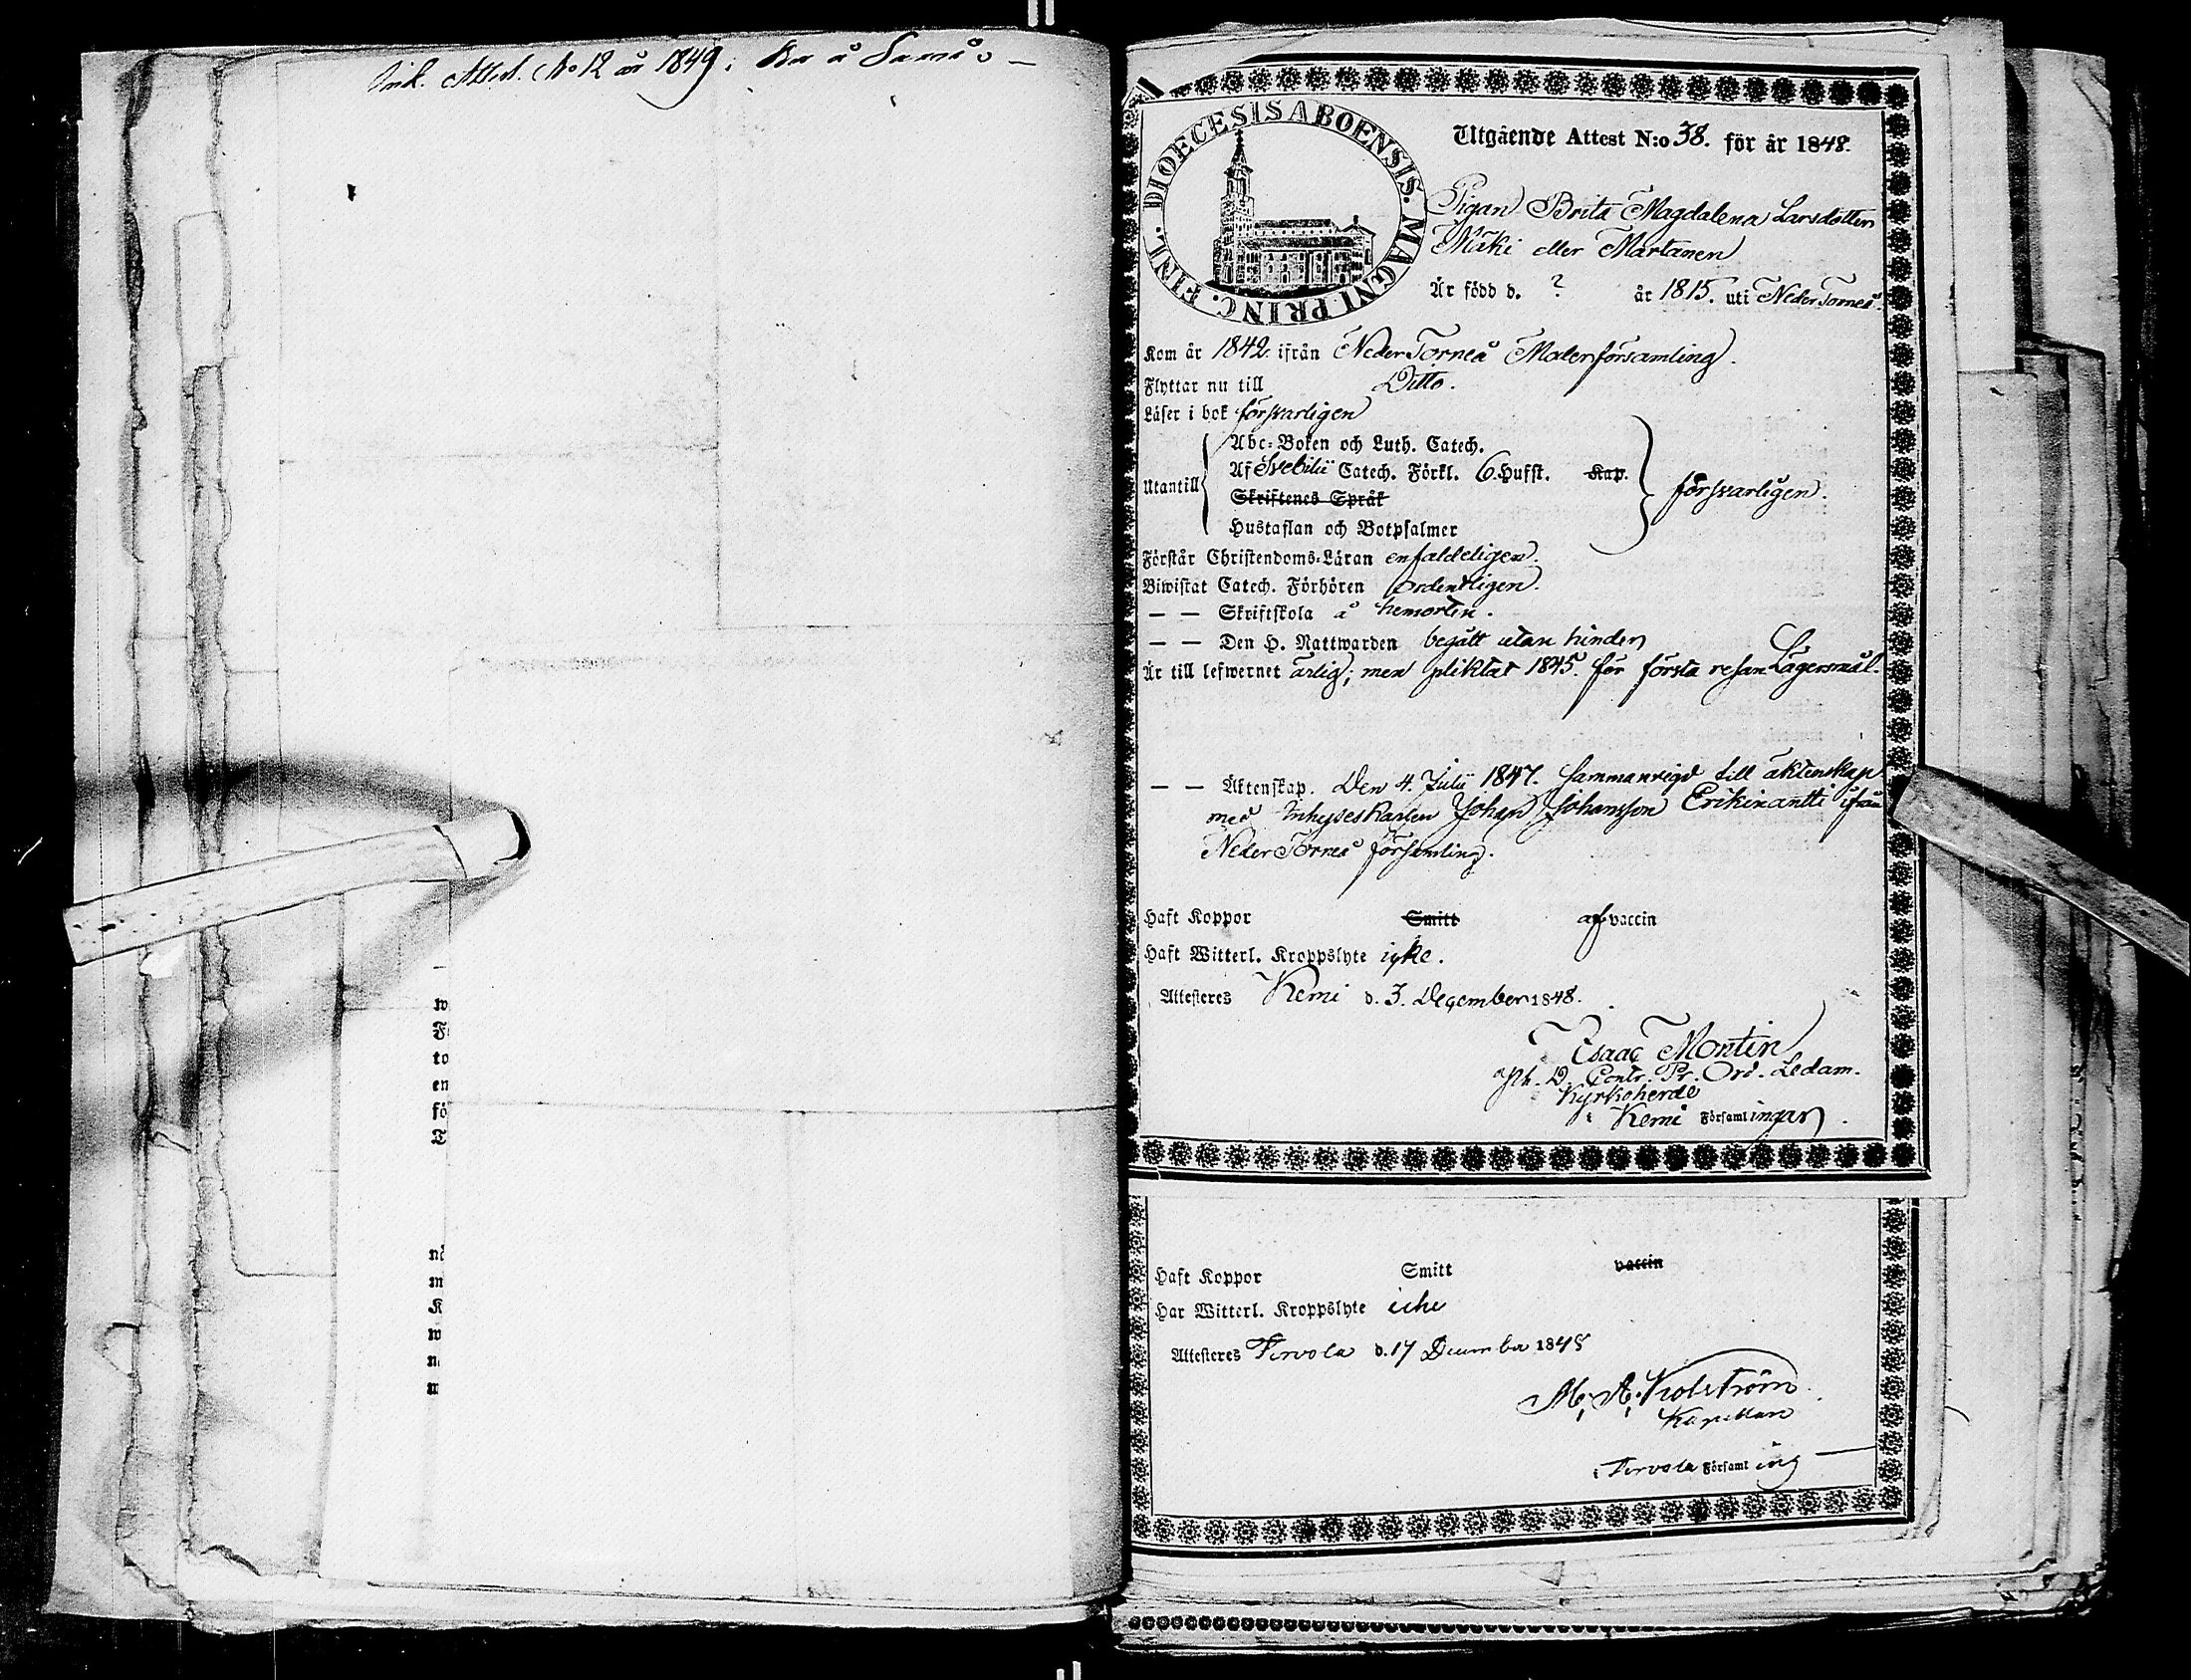 Ink. Attest. No 12 år 1849;
DIOECESIS ABOENSIS. MAGNI PRINC. FINL.
Utgående Attest N:o 38. för år 1848.
Pigan Brita Magdalena Larsdotter
Mäki eller Martanen
Är född d. ? år 1815. uti Neder Torneå.
Kom år 1842. ifrån Neder Torneå Moderförsamling.
Flyttar nu till Ditto.
Läser i bok försvarligen
Utantill
Abc-Boken och Luth. Catech.
Af Svebilii Catech. Förkl. 6. Hufst. Kap.
Skriftenes Språk
Hustaflan och Botpsalmer
försvarligen.
Förstår Christendoms-Läran enfaldeligen.
Biwistat Catech. Förhören ordentligen.
— — Skriftskola å hemorten.
— — Den H. Nattwarden begått utan hinder
Är till lefwernet ärlig; men pliktat 1845. för första resan Lägersmål.
— — Äktenskap. Den 4. Julii 1847. sammanvigd till äktenskap
med Inhyseskarlen Johan Johansson Erikinantti ifrån
Neder Torneå församling.
Haft Koppor Smitt af vaccin
Haft Witterl. Kroppslyte icke.
Attesteres Kemi d. 3. December 1848.
Isaac Montin
Ph. D. Contr. Pr. Ord. Ledam.
Kyrkoherde
i Kemi Församlingar.
Haft Koppor Smitt vaccin
Har Witterl. Kroppslyte icke
Attesteres Tervola d. 17 December 1848
Kapellan
i Tervola Församling
w
F
to
en
fö
T
nå
m
K
w
n
m